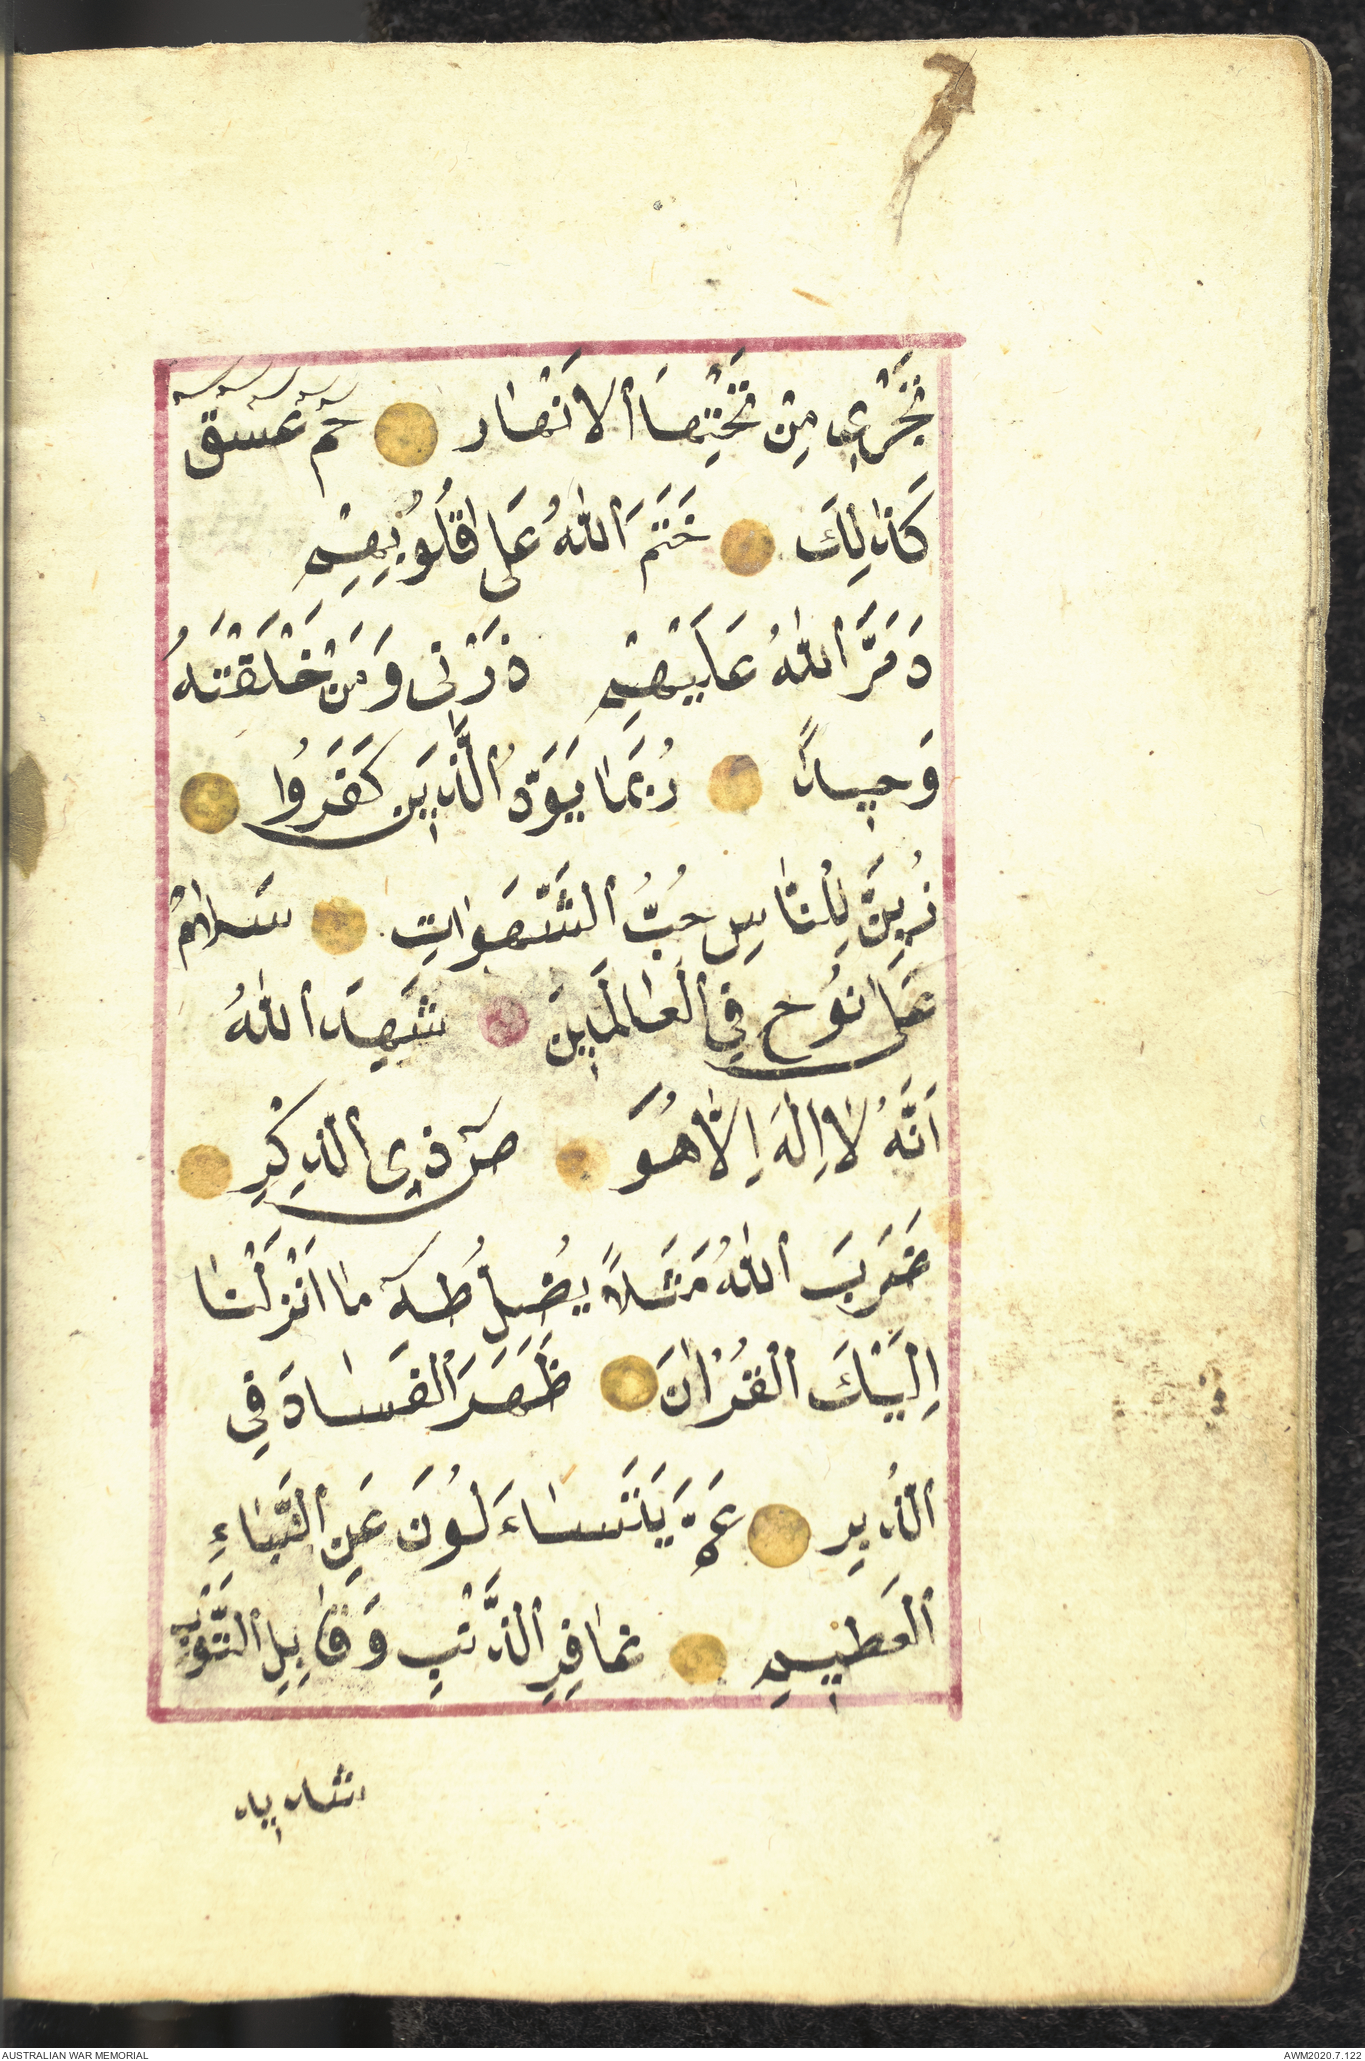 تَجْرِي مِنْ تَحْتِهَا الاَنْهَار حم عسق
كَذٰلِكَ خَتَمَ اللّٰهُ عَلٰى قُلُوبِهِمْ
دَمَّرَ اللّٰهُ عَلَيْهِمْ ذَرْنى وَمَنْ خَلَقْتَهُ
وَحيداً رُبَمَا يَوَدُّ الَّذينَ كَفَرُوا
زُيِّنَ لِلنَّاسِ حُبُّ الشَّهَوَاتِ سَلَامٌ
عَلٰى نُوح فِي الْعَالَمينَ شَهِدَ اللّٰهُ
اَنَّهُ لَا اِلٰهَ اِلَّا هُوَ ص ذي الذِكْرِ
ضَرَبَ اللّٰهُ مَثَلاً يُضِلُّ طٰهٓ مَا اَنْزَلْنَا
اِلَيْكَ الْقُرْاٰنَ ظَهَرَ الْفَسَادَ فِي
الدُبرِ عَمَّ يَتَسَاءَلُونَ عَنِ النَّبَاءِ
الْعَظيمِ غَافِرِ الذَّنْبِ وَقَابِلِ التَّوْبِ
شديد
AUSTRALIAN WAR MEMORIAL AWM2020.7.122